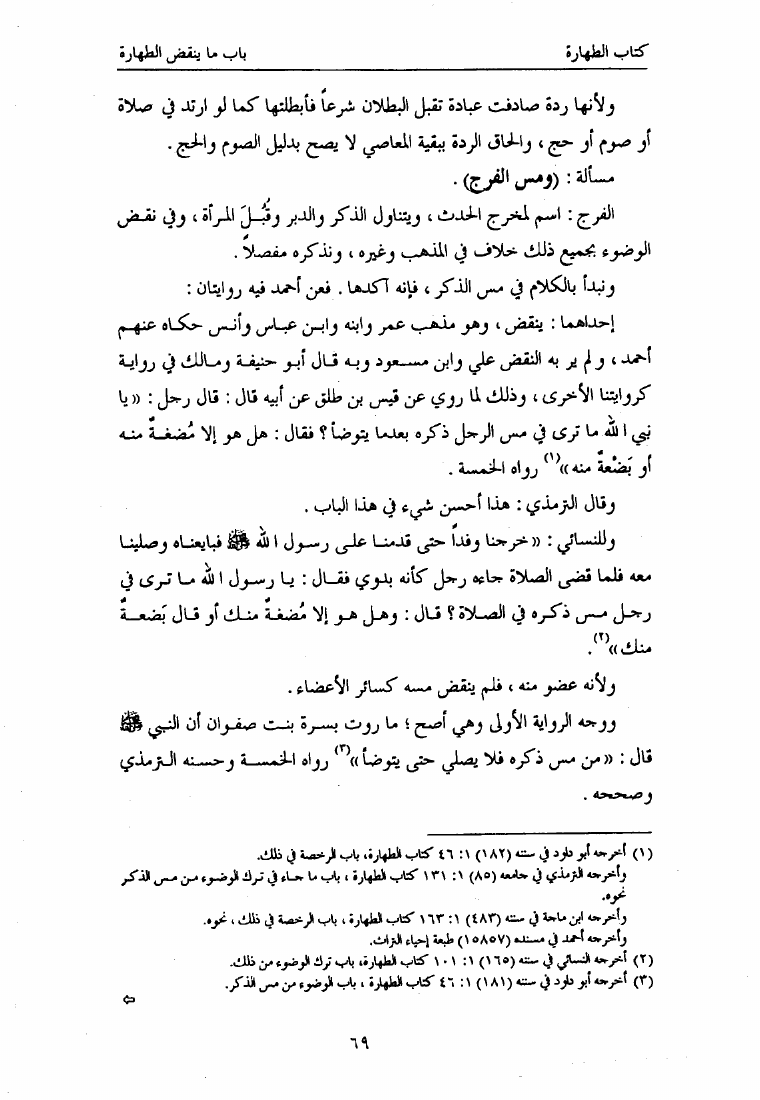 كتاب الطهارة باب ما ينقض الطهارة
ولأنها ردة صادفت عبادة تقبل البطلان شرعاً فأبطلتها كما لو ارتد في صلاة
أو صوم أو حج ، والحاق الردة ببقية المعاصي لا يصح بدليل الصوم والحج .
مسألة : (ومس الفرج) .
الفرج : اسم لمخرج الحدث ، ويتناول الذكر والدبر وقُبُلَ المرأة ، وفي نقض
الوضوء بجميع ذلك خلاف في المذهب وغيره ، ونذكره مفصلاً .
ونبدأ بالكلام في مس الذكر ، فإنه آكدها . فعن أحمد فيه روايتان :
إحداهما : ينقض ، وهو مذهب عمر وابنه وابن عباس وأنس حكاه عنهم
أحمد ، و لم ير به النقض علي وابن مسعود وبه قال أبو حنيفة ومالك في رواية
كروايتنا الأخرى ، وذلك لما روي عن قيس بن طلق عن أبيه قال : قال رجل : «يا
نبي الله ما ترى في مس الرجل ذكره بعدما يتوضأ ؟ فقال : هل هو إلا مُضغةٌ منه
أو بَضْعةٌ منه»(١) رواه الخمسة .
وقال الترمذي : هذا أحسن شيء في هذا الباب .
وللنسائي : «خرجنا وفداً حتى قدمنا على رسول الله ﷺ فبايعناه وصلينا
معه فلما قضى الصلاة جاءه رجل كأنه بدوي فقال : يا رسول الله ما ترى في
رجل مس ذكره في الصلاة ؟ قال : وهل هو إلا مُضغةٌ منك أو قال بَضعةٌ
منك»(٢).
ولأنه عضو منه ، فلم ينقض مسه كسائر الأعضاء .
ووجه الرواية الأولى وهي أصح ؛ ما روت بسرة بنت صفوان أن النبي ﷺ
قال : «من مس ذكره فلا يصلي حتى يتوضأ»(٣) رواه الخمسة وحسنه الترمذي
وصححه .
(١) أخرجه أبو داود في سننه (١٨٢) ١: ٤٦ كتاب الطهارة، باب الرخصة في ذلك.
وأخرجه الترمذي في جامعه (٨٥) ١: ١٣١ كتاب الطهارة ، باب ما جاء في ترك الوضوء من مس الذكر
نحوه.
وأخرجه ابن ماجة في سننه (٤٨٣) ١: ١٦٣ كتاب الطهارة ، باب الرخصة في ذلك ، نحوه.
وأخرجه أحمد في مسنده (١٥٨٥٧) طبعة إحياء التراث.
(٢) أخرجه النسائي في سننه (١٦٥) ١: ١٠١ كتاب الطهارة، باب ترك الوضوء من ذلك.
(٣) أخرجه أبو داود في سننه (١٨١) ١: ٤٦ كتاب الطهارة ، باب الوضوء من مس الذكر.
⇦
٦٩